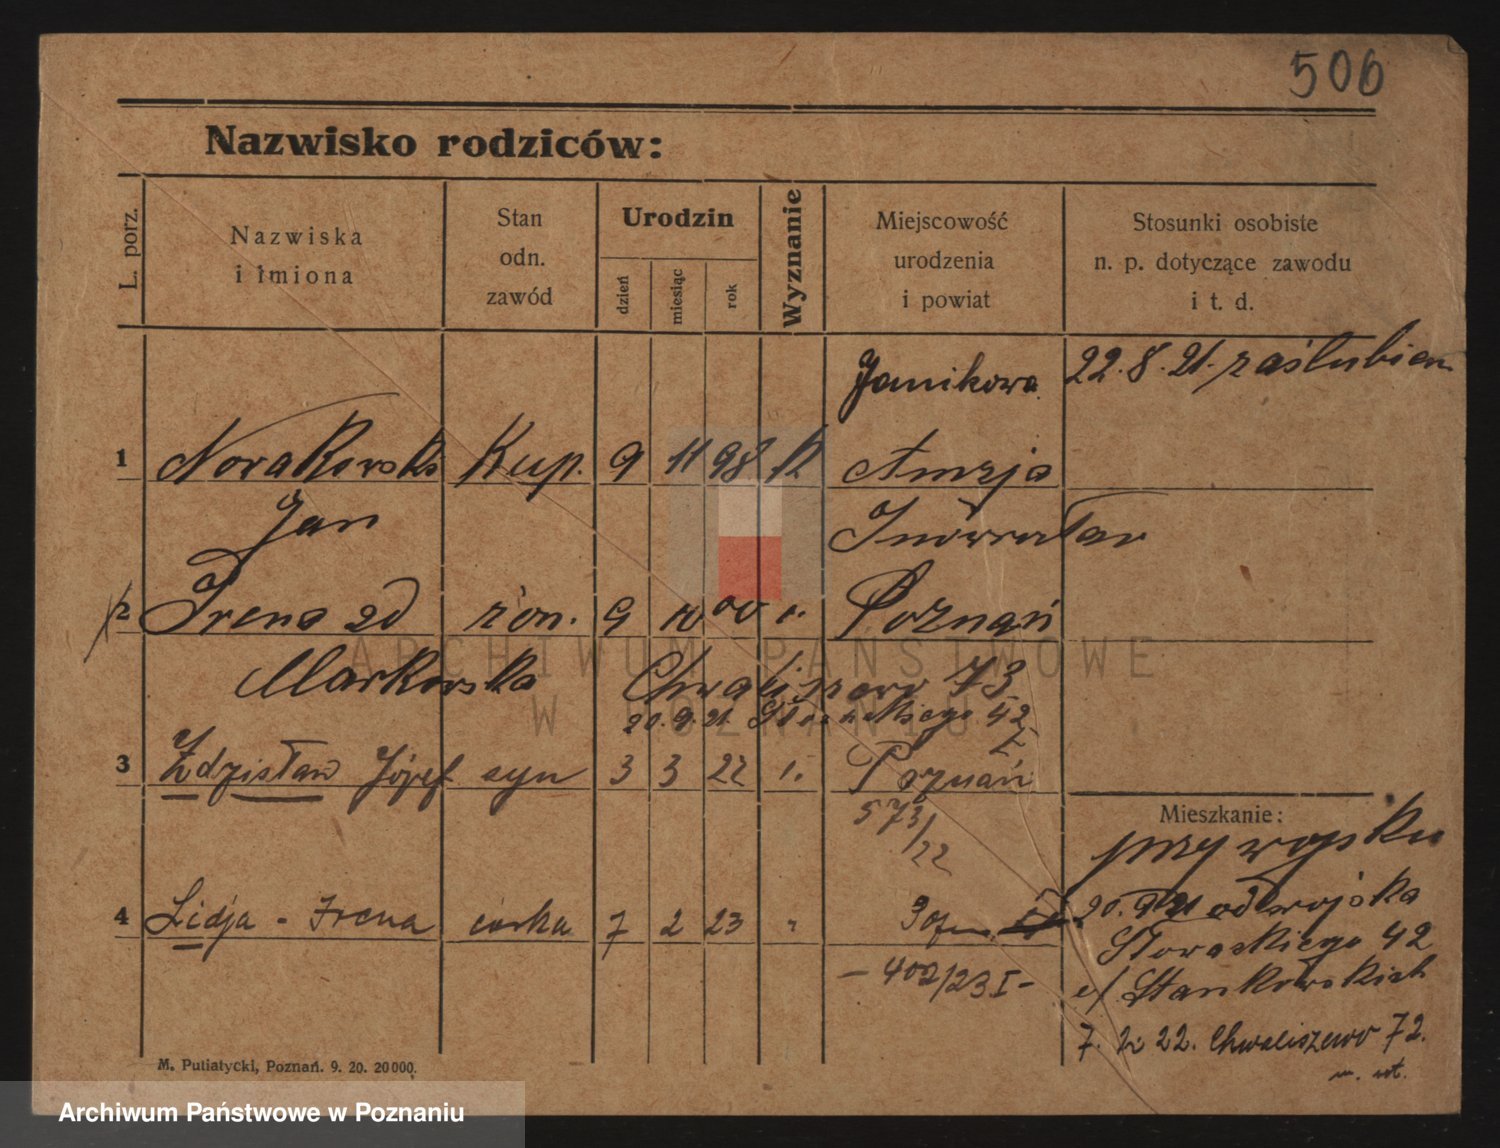 506
Nazwisko rodziców:
L. porz.
Nazwiska
i imiona
Stan
odn.
zawód
Urodzin
dzień
miesiąc
rok
Wyznanie
Miejscowość
urodzenia
i powiat
Stosunki osobiste
n. p. dotyczące zawodu
i t. d.
Janikowo 22.8.21. zaślubieni
1 Nowakowski Kup. 9 11 98 k
Jan Inowrocław
2 Irena zd żon. 9 10 00 r. Poznań
Markowska Chwaliszewo 73
20.9.21 Słowackiego 42
3 Zdzisław Józef syn 3 3 22 r. Poznań
573/22
Mieszkanie:
przy wojsku
4 Lidja - Irena córka 7 2 23 "
20.9.21 od wojska
Słowackiego 42
- 402/23 I -
c/ Stankowskich
7. 2. 22. Chwaliszewo 72.
M. Putiatycki, Poznań. 9. 20. 20000.
ARCHIWUM PAŃSTWOWE
W POZNANIU
Archiwum Państwowe w Poznaniu